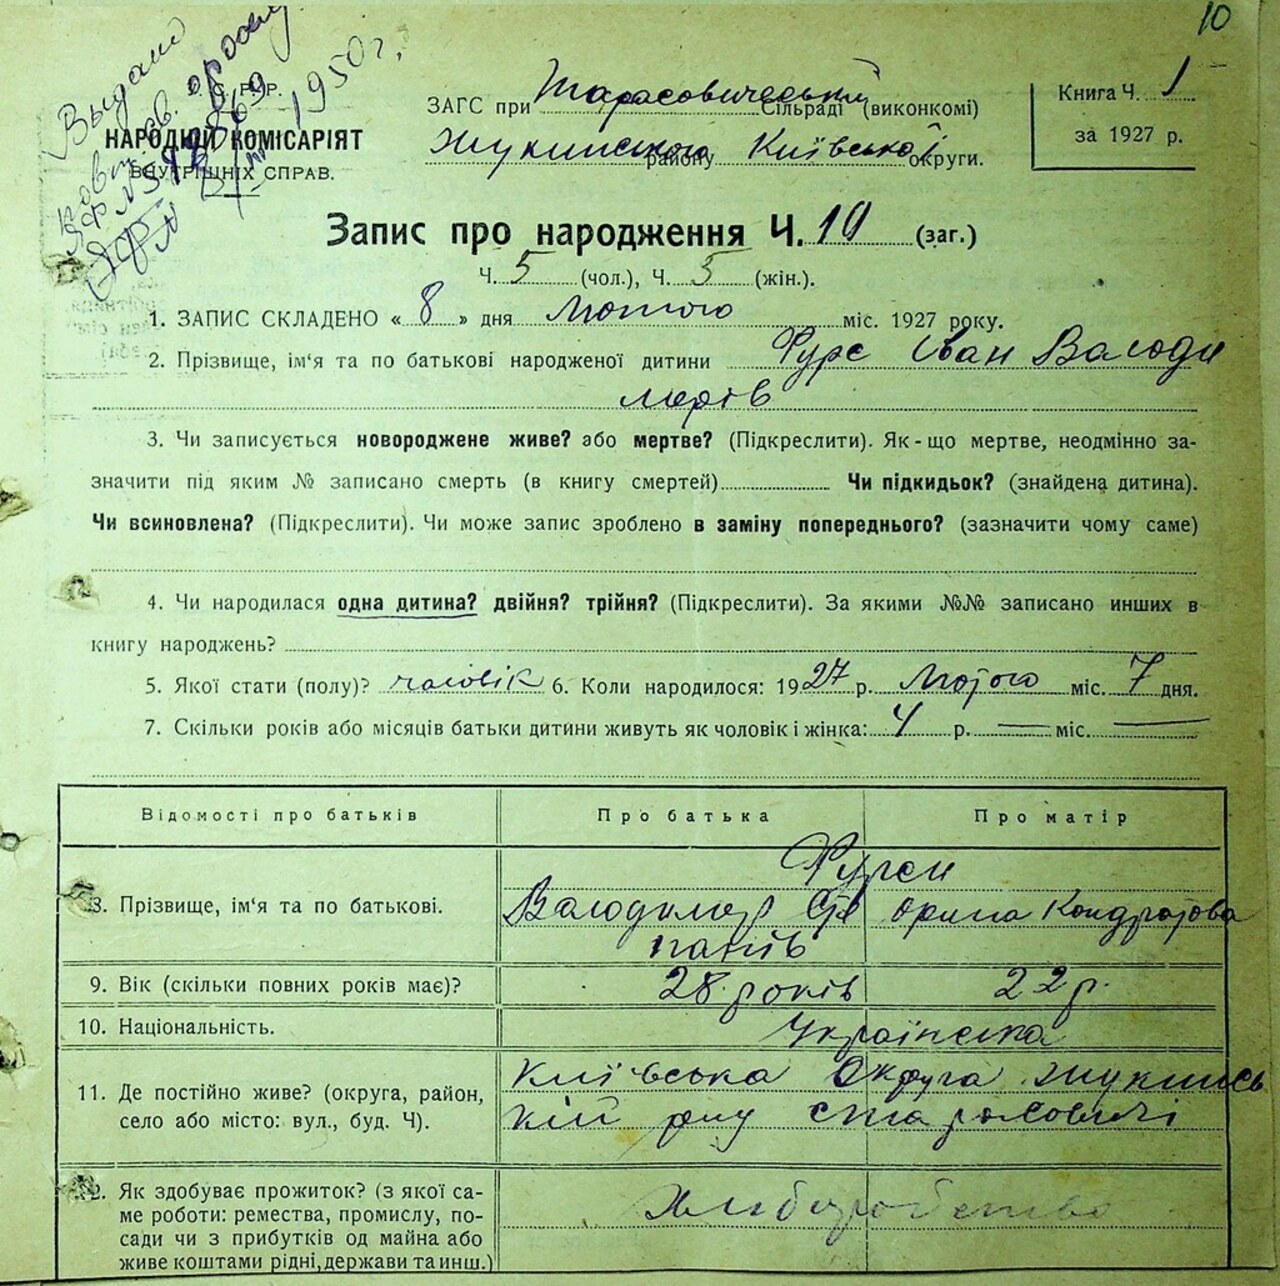 10
Выдано
повт. св.
1950 г.
Р.Р.
НАРОДНІЙ КОМІСАРІЯТ
ВНУТРІШНІХ СПРАВ.
ЗАГС при Тарасовичеській Сільраді (виконкомі)
Жукинського району Київської округи.
Книга Ч. 1
за 1927 р.
Запис про народження Ч. 10 (заг.)
Ч. 5 (чол.), Ч. 5 (жін.).
1. ЗАПИС СКЛАДЕНО « 8 » дня Лютого міс. 1927 року.
2. Прізвище, ім'я та по батькові народженої дитини Фурс Іван Володи
мерів
3. Чи записується новороджене живе? або мертве? (Підкреслити). Як-що мертве, неодмінно за-
значити під яким № записано смерть (в книгу смертей) Чи підкидьок? (знайдена дитина).
Чи всиновлена? (Підкреслити). Чи може запис зроблено в заміну попереднього? (зазначити чому саме)
4. Чи народилася одна дитина? двійня? трійня? (Підкреслити). За якими №№ записано инших в
книгу народжень?
5. Якої стати (полу)? чоловік 6. Коли народилося: 1927 р. Лютого міс. 7 дня.
7. Скільки років або місяців батьки дитини живуть як чоловік і жінка: 4 р. — міс. —
Відомості про батьків Про батька Про матір
Фурси
8. Прізвище, ім'я та по батькові. Володимер Сте Орина Кондратова
панів
9. Вік (скільки повних років має)? 28 років 22 р.
10. Національність. Українська
11. Де постійно живе? (округа, район, Київська Округа Жукинсь
село або місто: вул., буд. Ч). кий
12. Як здобуває прожиток? (з якої са-
ме роботи: ремества, промислу, по- Хлиборобство
сади чи з прибутків од майна або
живе коштами рідні, держави та инш.)